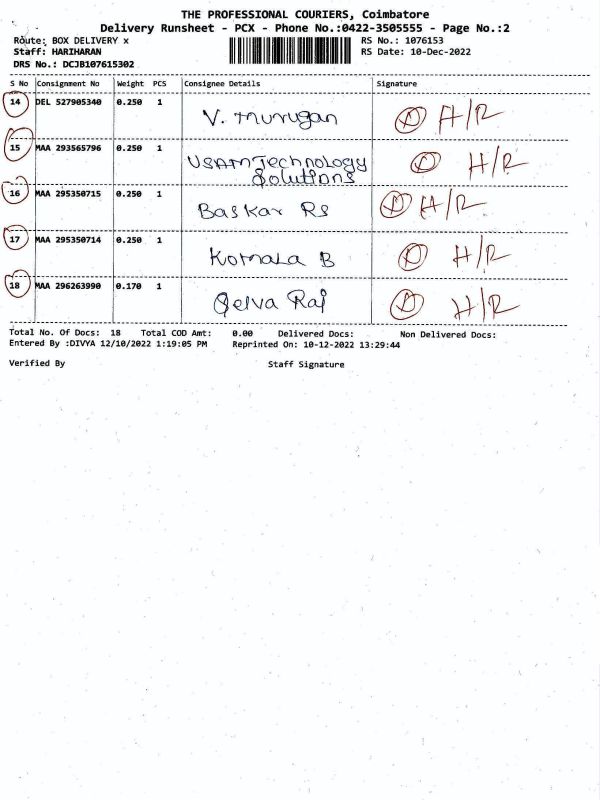 THE PROFESSIONAL COURIERS, Coimbatore
Delivery Runsheet - PCX - Phone No.:0422-3505555 - Page No.:2
Route: BOX DELIVERY x RS No.: 1076153
Staff: HARIHARAN RS Date: 10-Dec-2022
DRS No.: DCJB107615302
S No Consignment No Weight PCS Consignee Details Signature
14 DEL 527905340 0.250 1 V. Murugan D H/R
15 MAA 293565796 0.250 1 USAM Technology D H/R
Solutions
16 MAA 295350715 0.250 1 Baskar RS D H/R
17 MAA 295350714 0.250 1 Komala B D H/R
18 MAA 296263990 0.170 1 Selva Raj D H/R
Total No. Of Docs: 18 Total COD Amt: 0.00 Delivered Docs: Non Delivered Docs:
Entered By :DIVYA 12/10/2022 1:19:05 PM Reprinted On: 10-12-2022 13:29:44
Verified By Staff Signature